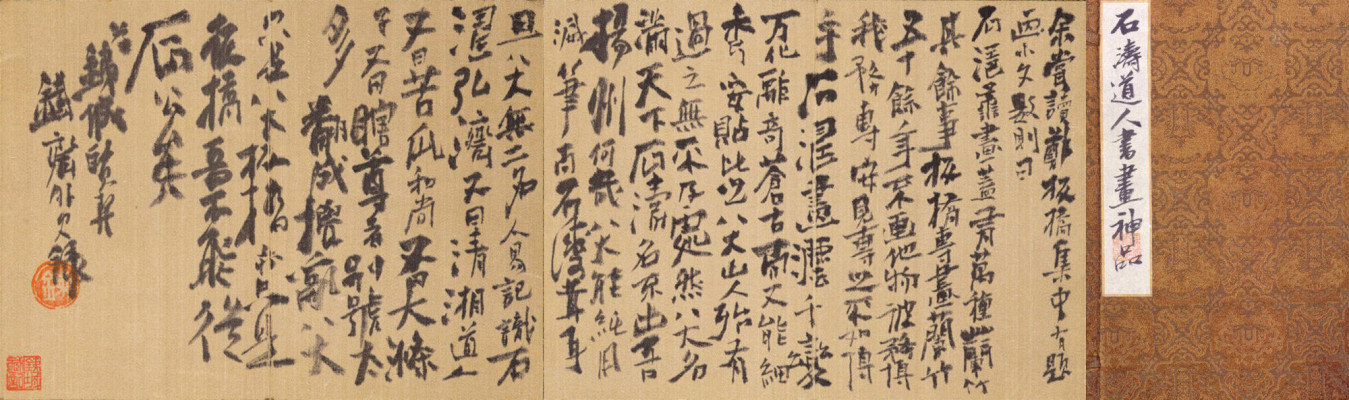 石濤道人書畫神品
余嘗讀鄭板橋集中有題
画小文數則曰
石濤善畫蓋有萬種蘭竹
其餘事板橋專畫蘭竹
五十餘年不画他物彼務博
我務專安見專之不如博
乎石濤畫灋千變
万化離奇蒼古而又能細
秀妥貼比之八大山人殆有
過之無不及處然八大名
滿天下石濤名不出吾
揚州何哉八大能純用
減筆而石濤茸耳
且八大無二名人易記識石
濤弘濟又曰清湘道人
又曰苦瓜和尚又曰大滌
子又曰瞎尊者別號太
多翻成攪亂八大
只是八大板橋亦只是
板橋吾不能從
石公矣
鐵齋外史錄